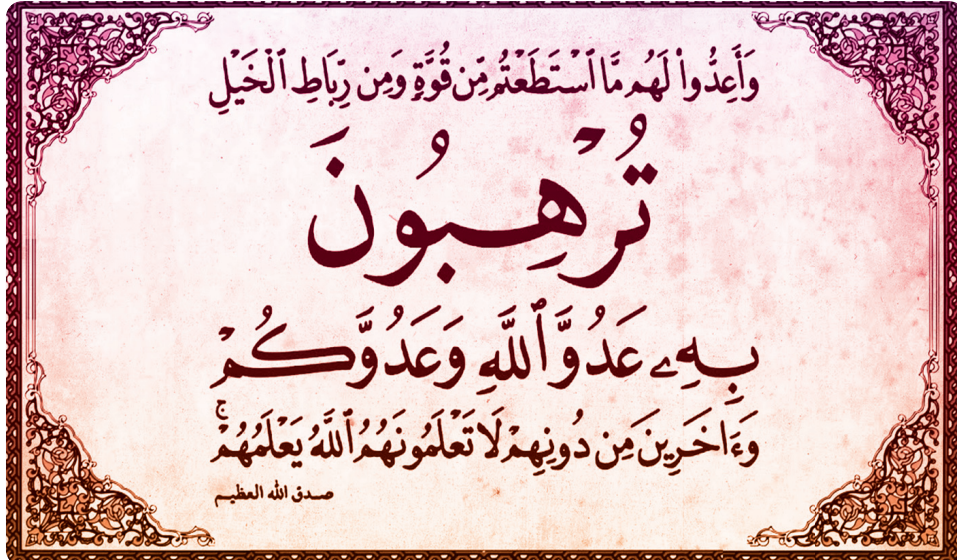 وَأَعِدُّوا۟ لَهُم مَّا ٱسْتَطَعْتُم مِّن قُوَّةٍ وَمِن رِّبَاطِ ٱلْخَيْلِ
تُرْهِبُونَ
بِهِۦ عَدُوَّ ٱللَّهِ وَعَدُوَّكُمْ
وَءَاخَرِينَ مِن دُونِهِمْ لَا تَعْلَمُونَهُمُ ٱللَّهُ يَعْلَمُهُمْ ۚ
صدق الله العظيم